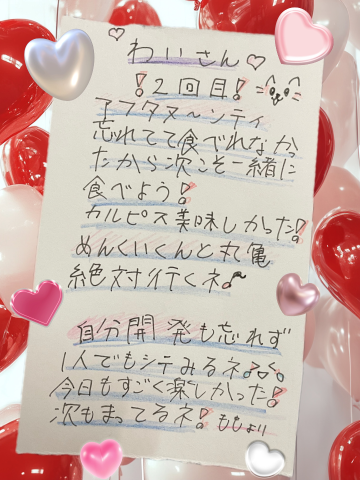 わいさん
！2回目！
アフタヌ〜ンティ
忘れてて食べれなかっ
たから次こそ一緒に
食べよう！
カルピス美味しかった！
めんくいくんと丸亀
絶対行くネ
自分開発も忘れず
1人でもシテみるネ
今日もすごく楽しかった！
次もまってるネ！もしょり